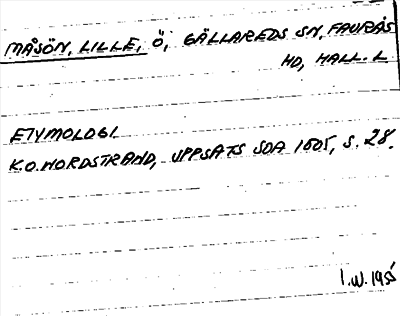 MÅSÖN, LILLE, Ö, GÄLLAREDS SN, FAURÅS
HD, HALL. L
ETYMOLOGI
K.O. NORDSTRAND, UPPSATS SOA 1605, S. 28.
I.W. 1955